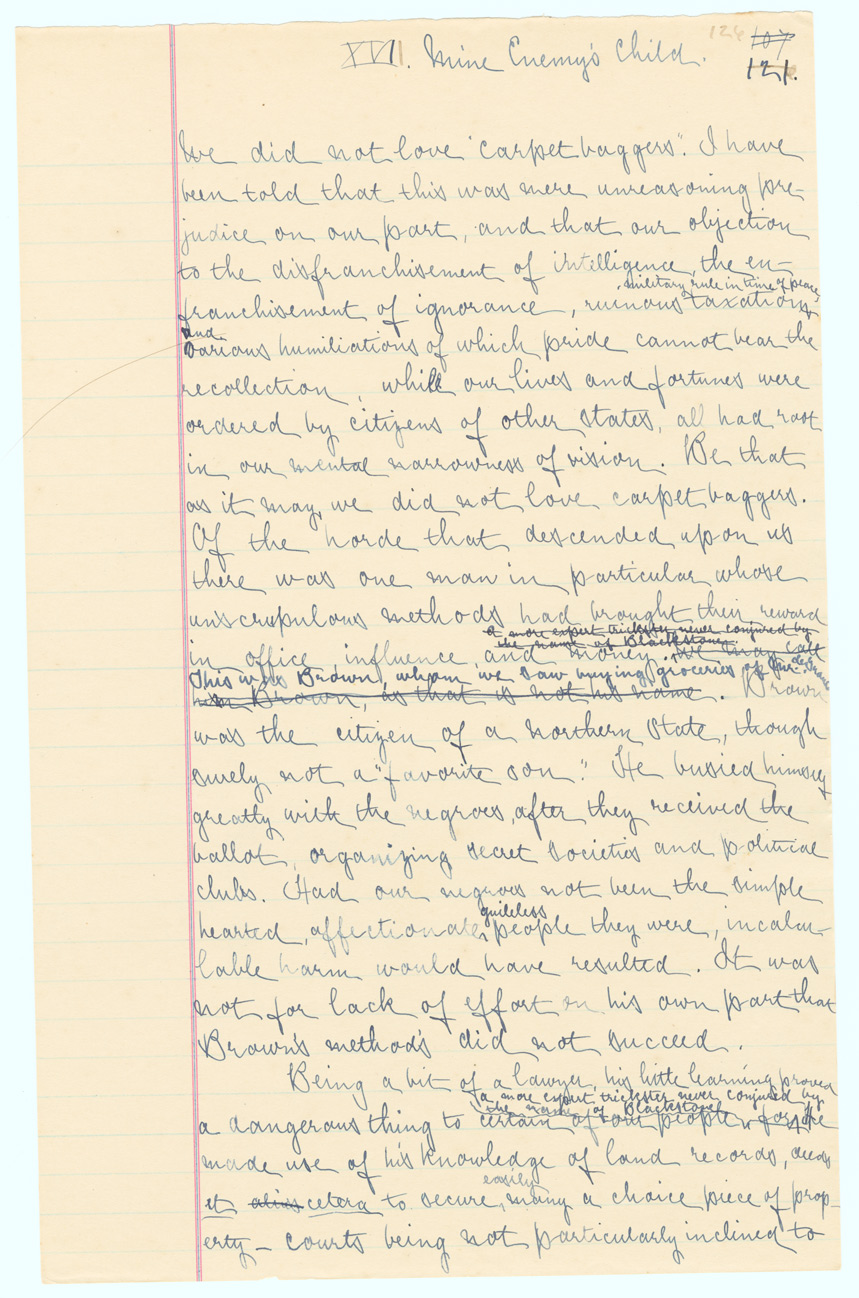 XVII. Mine Enemy's Child.
126 107
121.
We did not love "carpet baggers". I have
been told that this was mere unreasoning pre-
judice on our part, and that our objection
to the disfranchisement of intelligence, the en-
, military rule in time of peace,
franchisement of ignorance, ruinous taxation,
and
various humiliations of which pride cannot bear the
recollection, while our lives and fortunes were
ordered by citizens of other states, all had root
in our mental narrowness of vision. Be that
as it may, we did not love carpet baggers.
Of the horde that descended upon us
there was one man in particular whose
unscrupulous methods had brought their reward
a more expert trickster never conjured by
the name of Blackstone.
in office, influence and money. We may call
This was Brown, whom we saw buying groceries of
him Brown, as that is not his name. Brown
was the citizen of a northern State, though
surely not a "favorite son." He busied himself
greatly with the negroes, after they received the
ballot, organizing secret societies and political
clubs. Had our negroes not been the simple
guileless
hearted, affectionate, people they were, incalcu-
lable harm would have resulted. It was
not for lack of effort on his own part that
Brown's methods did not succeed.
Being a bit of a lawyer, his little learning proved
a more expert trickster never conjured by
the name of Blackstone
a dangerous thing to certain of our people, for he
made use of his knowledge of land records, deeds
easily
et alias cetera to secure, many a choice piece of prop-
erty – courts being not particularly inclined to